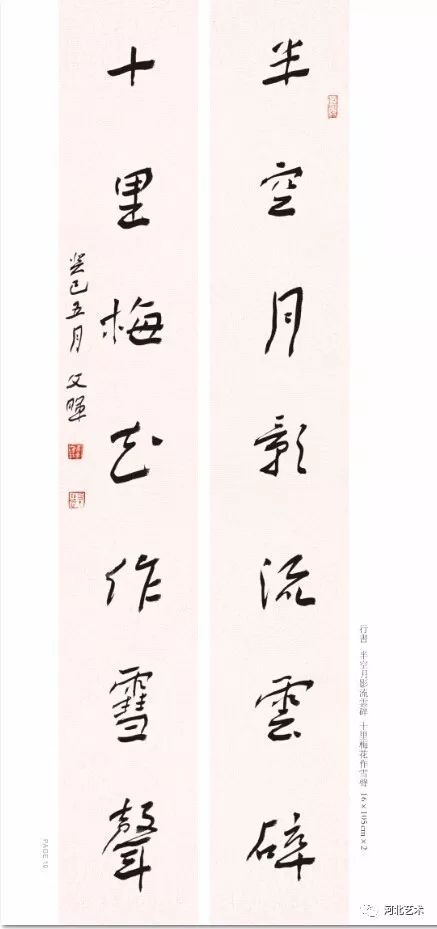 半空月影流雲碎
十里梅花作雪聲
癸巳五月 文暉
行書 半空月影流雲碎 十里梅花作雪聲 16×105cm×2
PAGE 10
河北艺术